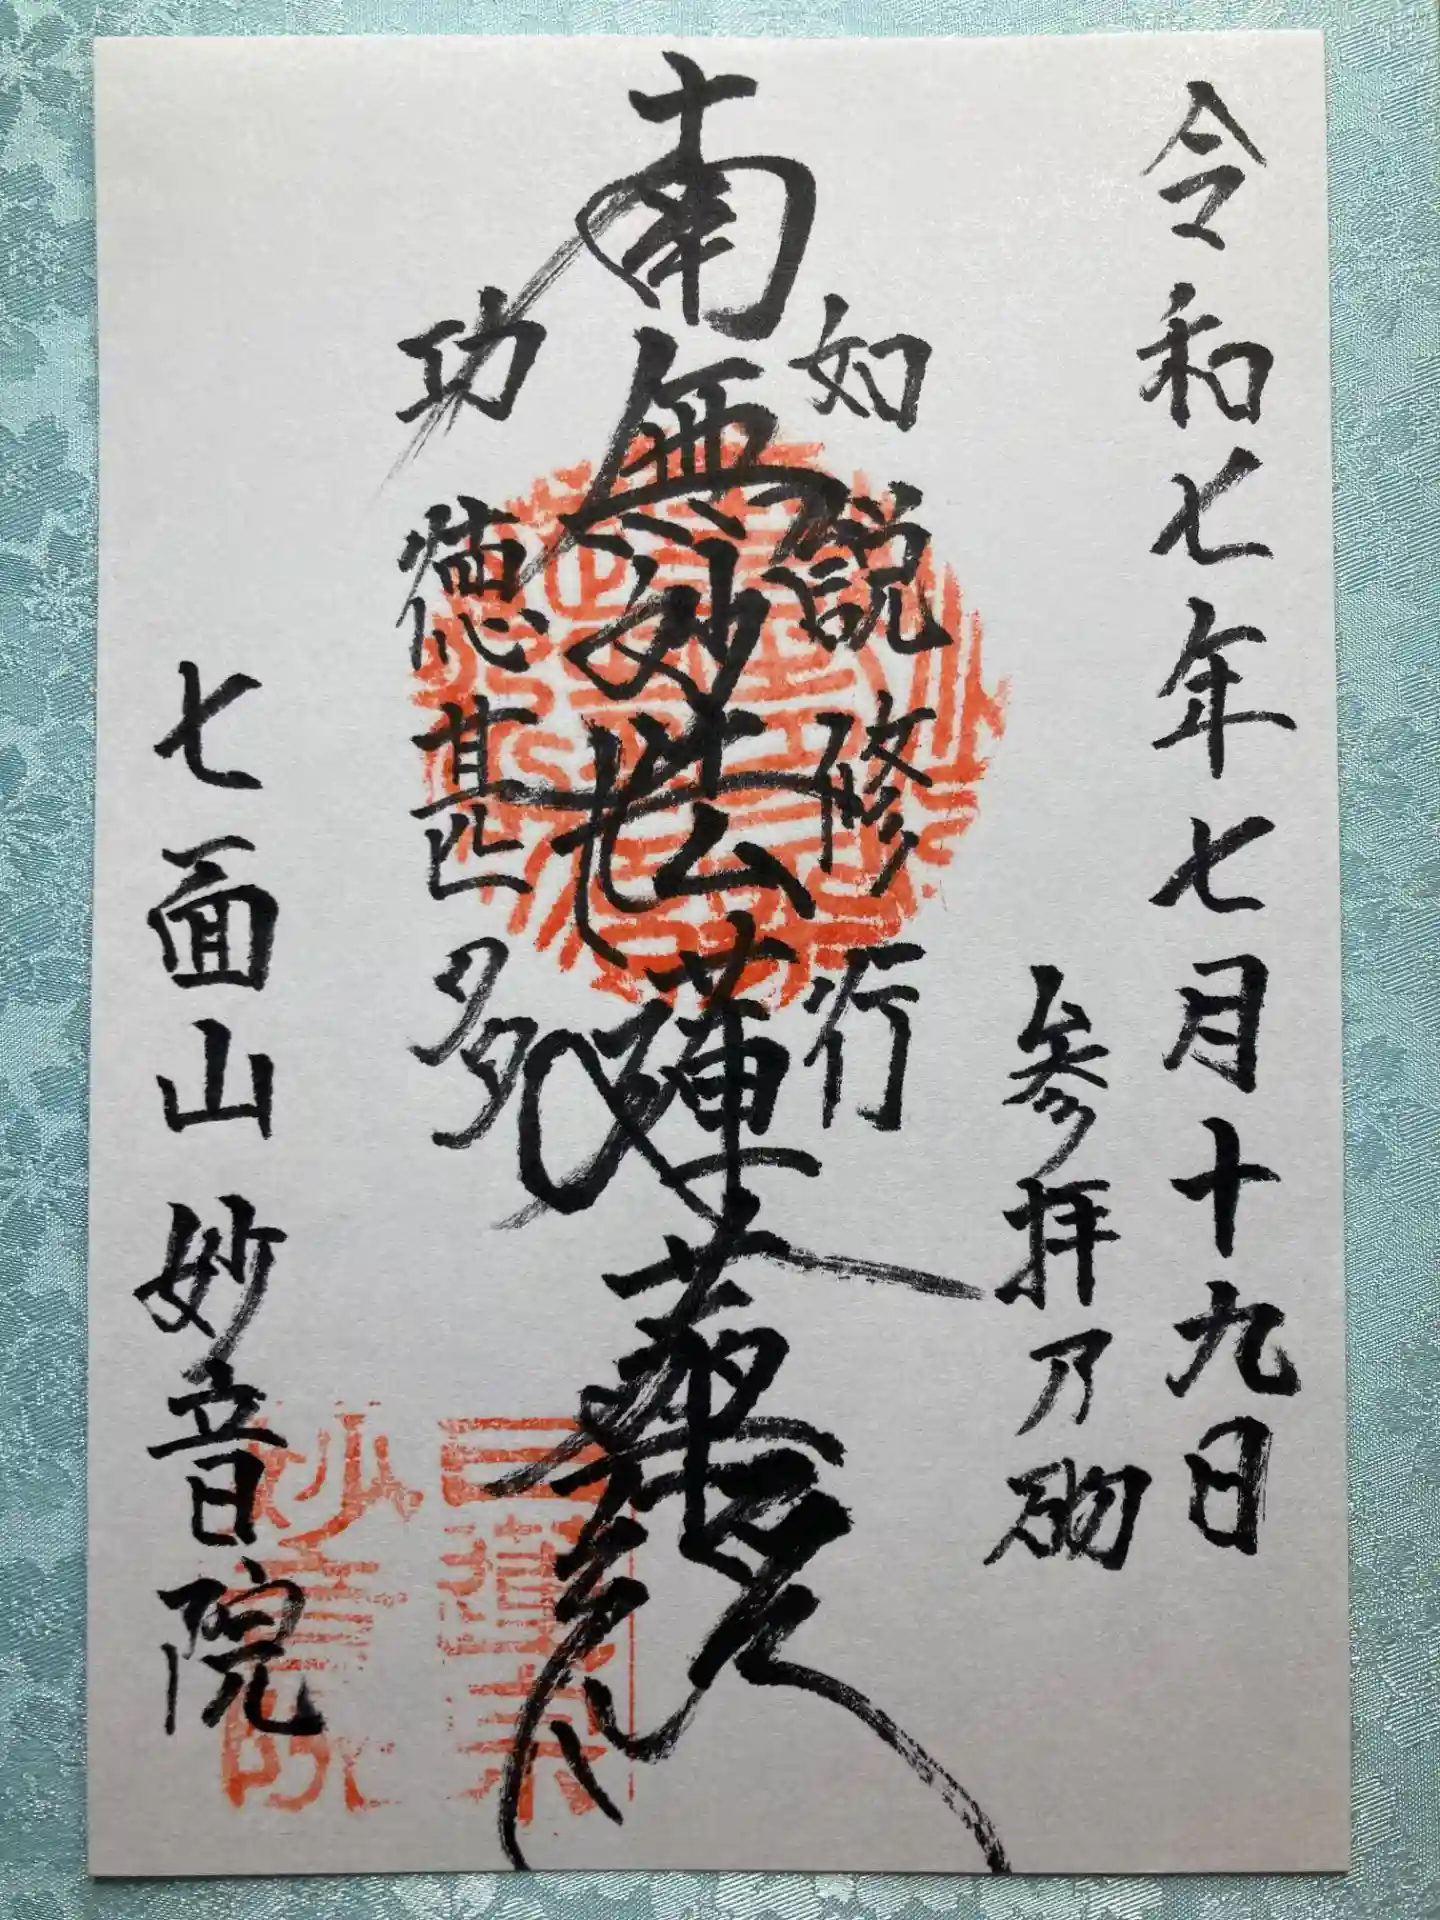 令和七年七月十九日
参拝乃砌
如説修行
南無妙法蓮華経
功徳甚多
七面山妙音院